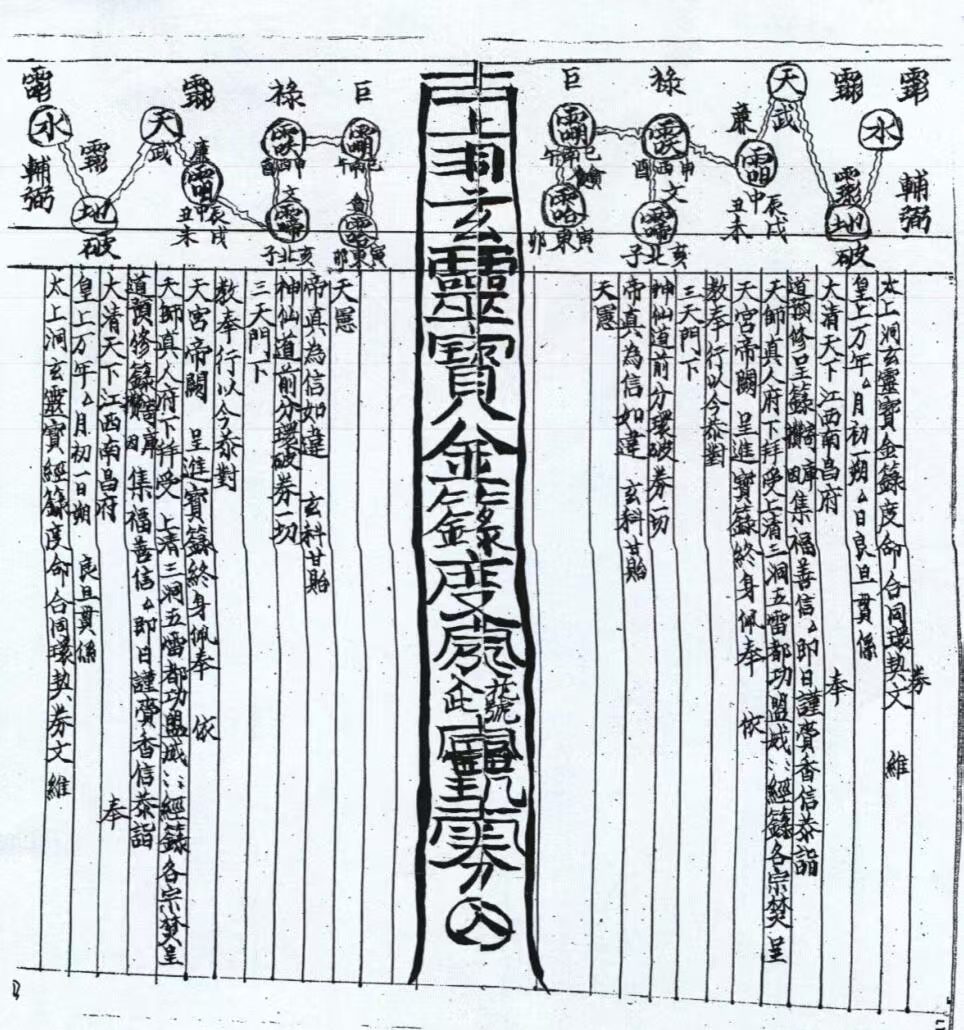 水
輔弼
破
地
天
武
廉
中
辰戌
丑未
祿
申
西
酉
文
亥
北
子
巨
巳
南
午
寅
東
卯
券
太上洞玄靈寶金籙度命合同環契文 維
皇上万年厶月初一朔厶日良旦貫係
大清天下江西南昌府 奉
道預修呈籙 集福善信厶即日謹賫香信恭詣
天師真人府下拜受 上清三洞五雷都功盟威経籙各宗焚呈
天宮帝闕 呈進寶籙終身佩奉 依
教奉行以今恭對
三天門下
神仙道前分環破券一切
帝真為信如違 玄科甘貽
天憲
上洞玄靈寶金籙度命
花號
券
合
巨
巳
南
午
寅
東
卯
祿
申
西
酉
文
亥
北
子
廉
中
辰戌
丑未
天
武
地
破
水
輔弼
太上洞玄靈寶経籙度命合同環契券文維
皇上万年厶月初一日朔 良旦貫係
大清天下江西南昌府 奉
道預修籙 集福善信厶即日謹賫香信恭詣
天師真人府下拜受 上清三洞五雷都功盟威経籙各宗焚呈
天宮帝闕 呈進寶籙終身佩奉 依
教奉行以今恭對
三天門下
神仙道前分環破券一切
帝真為信如違 玄科甘貽
天愿